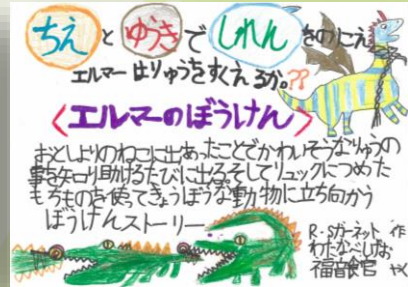 ちえとゆうきでしれんをのりこえ
エルマーはりゅうをすくえるか。??
<エルマーのぼうけん>
おとしよりのねこに出あったことでかわいそうなりゅうの
事を知り助けるたびに出る。そしてリュックにつめた
もちものを使ってきょうぼうな動物に立ち向かう
ぼうけんストーリー
R・Sガーネット 作
わたなべしげお
福音館 やく